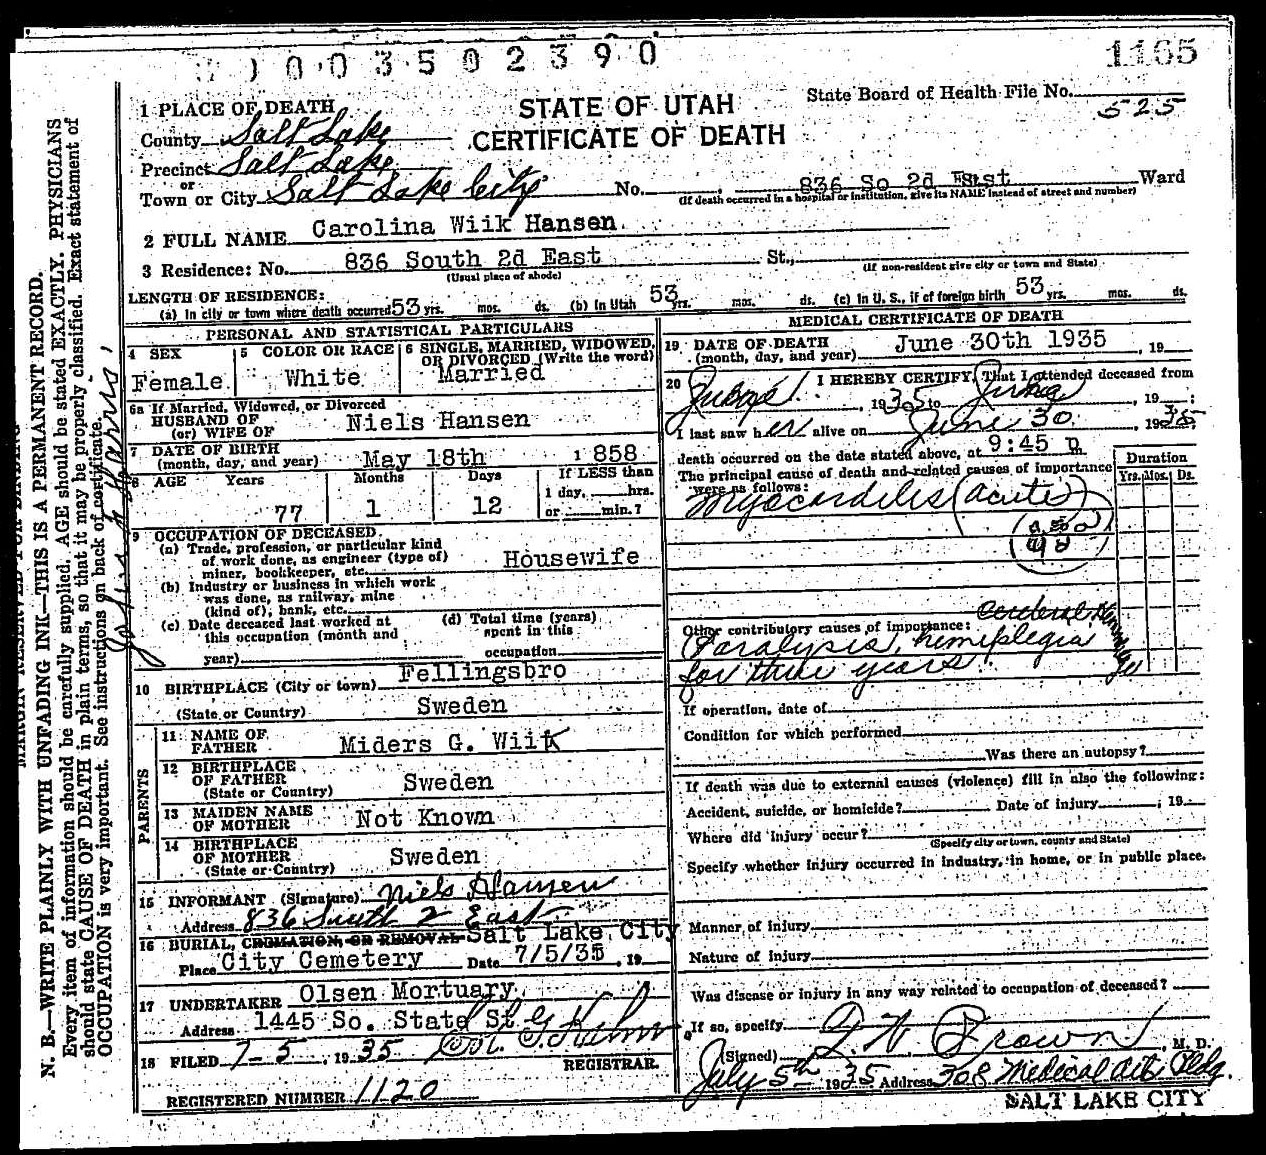 0003502390
1165
STATE OF UTAH
CERTIFICATE OF DEATH
State Board of Health File No.
525
1 PLACE OF DEATH
County Salt Lake
Precinct Salt Lake
or
Town or City Salt Lake City No. 836 So 2d East Ward
(If death occurred in a hospital or institution, give its NAME instead of street and number)
2 FULL NAME Carolina Wiik Hansen
3 Residence: No. 836 South 2d East St.,
(Usual place of abode) (If non-resident give city or town and State)
LENGTH OF RESIDENCE:
(a) In city or town where death occurred 53 yrs. mos. ds. (b) In Utah 53 yrs. mos. ds. (c) In U. S., if of foreign birth 53 yrs. mos. ds.
PERSONAL AND STATISTICAL PARTICULARS
4 SEX
Female
5 COLOR OR RACE
White
6 SINGLE, MARRIED, WIDOWED,
OR DIVORCED (Write the word)
Married
6a If Married, Widowed, or Divorced
HUSBAND OF
(or) WIFE OF Niels Hansen
7 DATE OF BIRTH
(month, day, and year) May 18th 1858
8 AGE Years Months Days If LESS than
1 day, hrs.
or min.?
77 1 12
9 OCCUPATION OF DECEASED
(a) Trade, profession, or particular kind
of work done, as engineer (type of)
miner, bookkeeper, etc. Housewife
(b) Industry or business in which work
was done, as railway, mine
(kind of), bank, etc.
(c) Date deceased last worked at
this occupation (month and
year)
(d) Total time (years)
spent in this
occupation
10 BIRTHPLACE (City or town) Fellingsbro
(State or Country) Sweden
PARENTS
11 NAME OF
FATHER Miders G. Wiik
12 BIRTHPLACE
OF FATHER
(State or Country) Sweden
13 MAIDEN NAME
OF MOTHER Not Known
14 BIRTHPLACE
OF MOTHER
(State or Country) Sweden
15 INFORMANT (Signature) Niels Hansen
Address 836 South 2 East
16 BURIAL, CREMATION, OR REMOVAL Salt Lake City
Place City Cemetery Date 7/5/35, 19
17 UNDERTAKER Olsen Mortuary
Address 1445 So. State St
18 FILED 7-5, 1935
REGISTRAR.
REGISTERED NUMBER 1120
MEDICAL CERTIFICATE OF DEATH
19 DATE OF DEATH
(month, day, and year) June 30th 1935, 19
20 I HEREBY CERTIFY, That I attended deceased from
, 1935 to , 19 :
I last saw her alive on June 30, 1935
death occurred on the date stated above, at 9:45 p m
The principal cause of death and related causes of importance
were as follows:
Duration
Yrs. Mos. Ds.
Myocarditis (acute)
Cerebral Hemorrhage
Other contributory causes of importance:
Paralysis, hemiplegia
for three years
If operation, date of
Condition for which performed
Was there an autopsy?
If death was due to external causes (violence) fill in also the following:
Accident, suicide, or homicide? Date of injury , 19
Where did injury occur?
(Specify city or town, county and State)
Specify whether injury occurred in industry, in home, or in public place.
Manner of injury
Nature of injury
Was disease or injury in any way related to occupation of deceased?
If so, specify
(Signed) Brown, M. D.
July 5th 1935 Address 308 Medical Arts Bldg.
SALT LAKE CITY
MARGIN RESERVED FOR BINDING
N. B.—WRITE PLAINLY WITH UNFADING INK—THIS IS A PERMANENT RECORD.
Every item of information should be carefully supplied. AGE should be stated EXACTLY. PHYSICIANS
should state CAUSE OF DEATH in plain terms, so that it may be properly classified. Exact statement of
OCCUPATION is very important. See instructions on back of certificate.